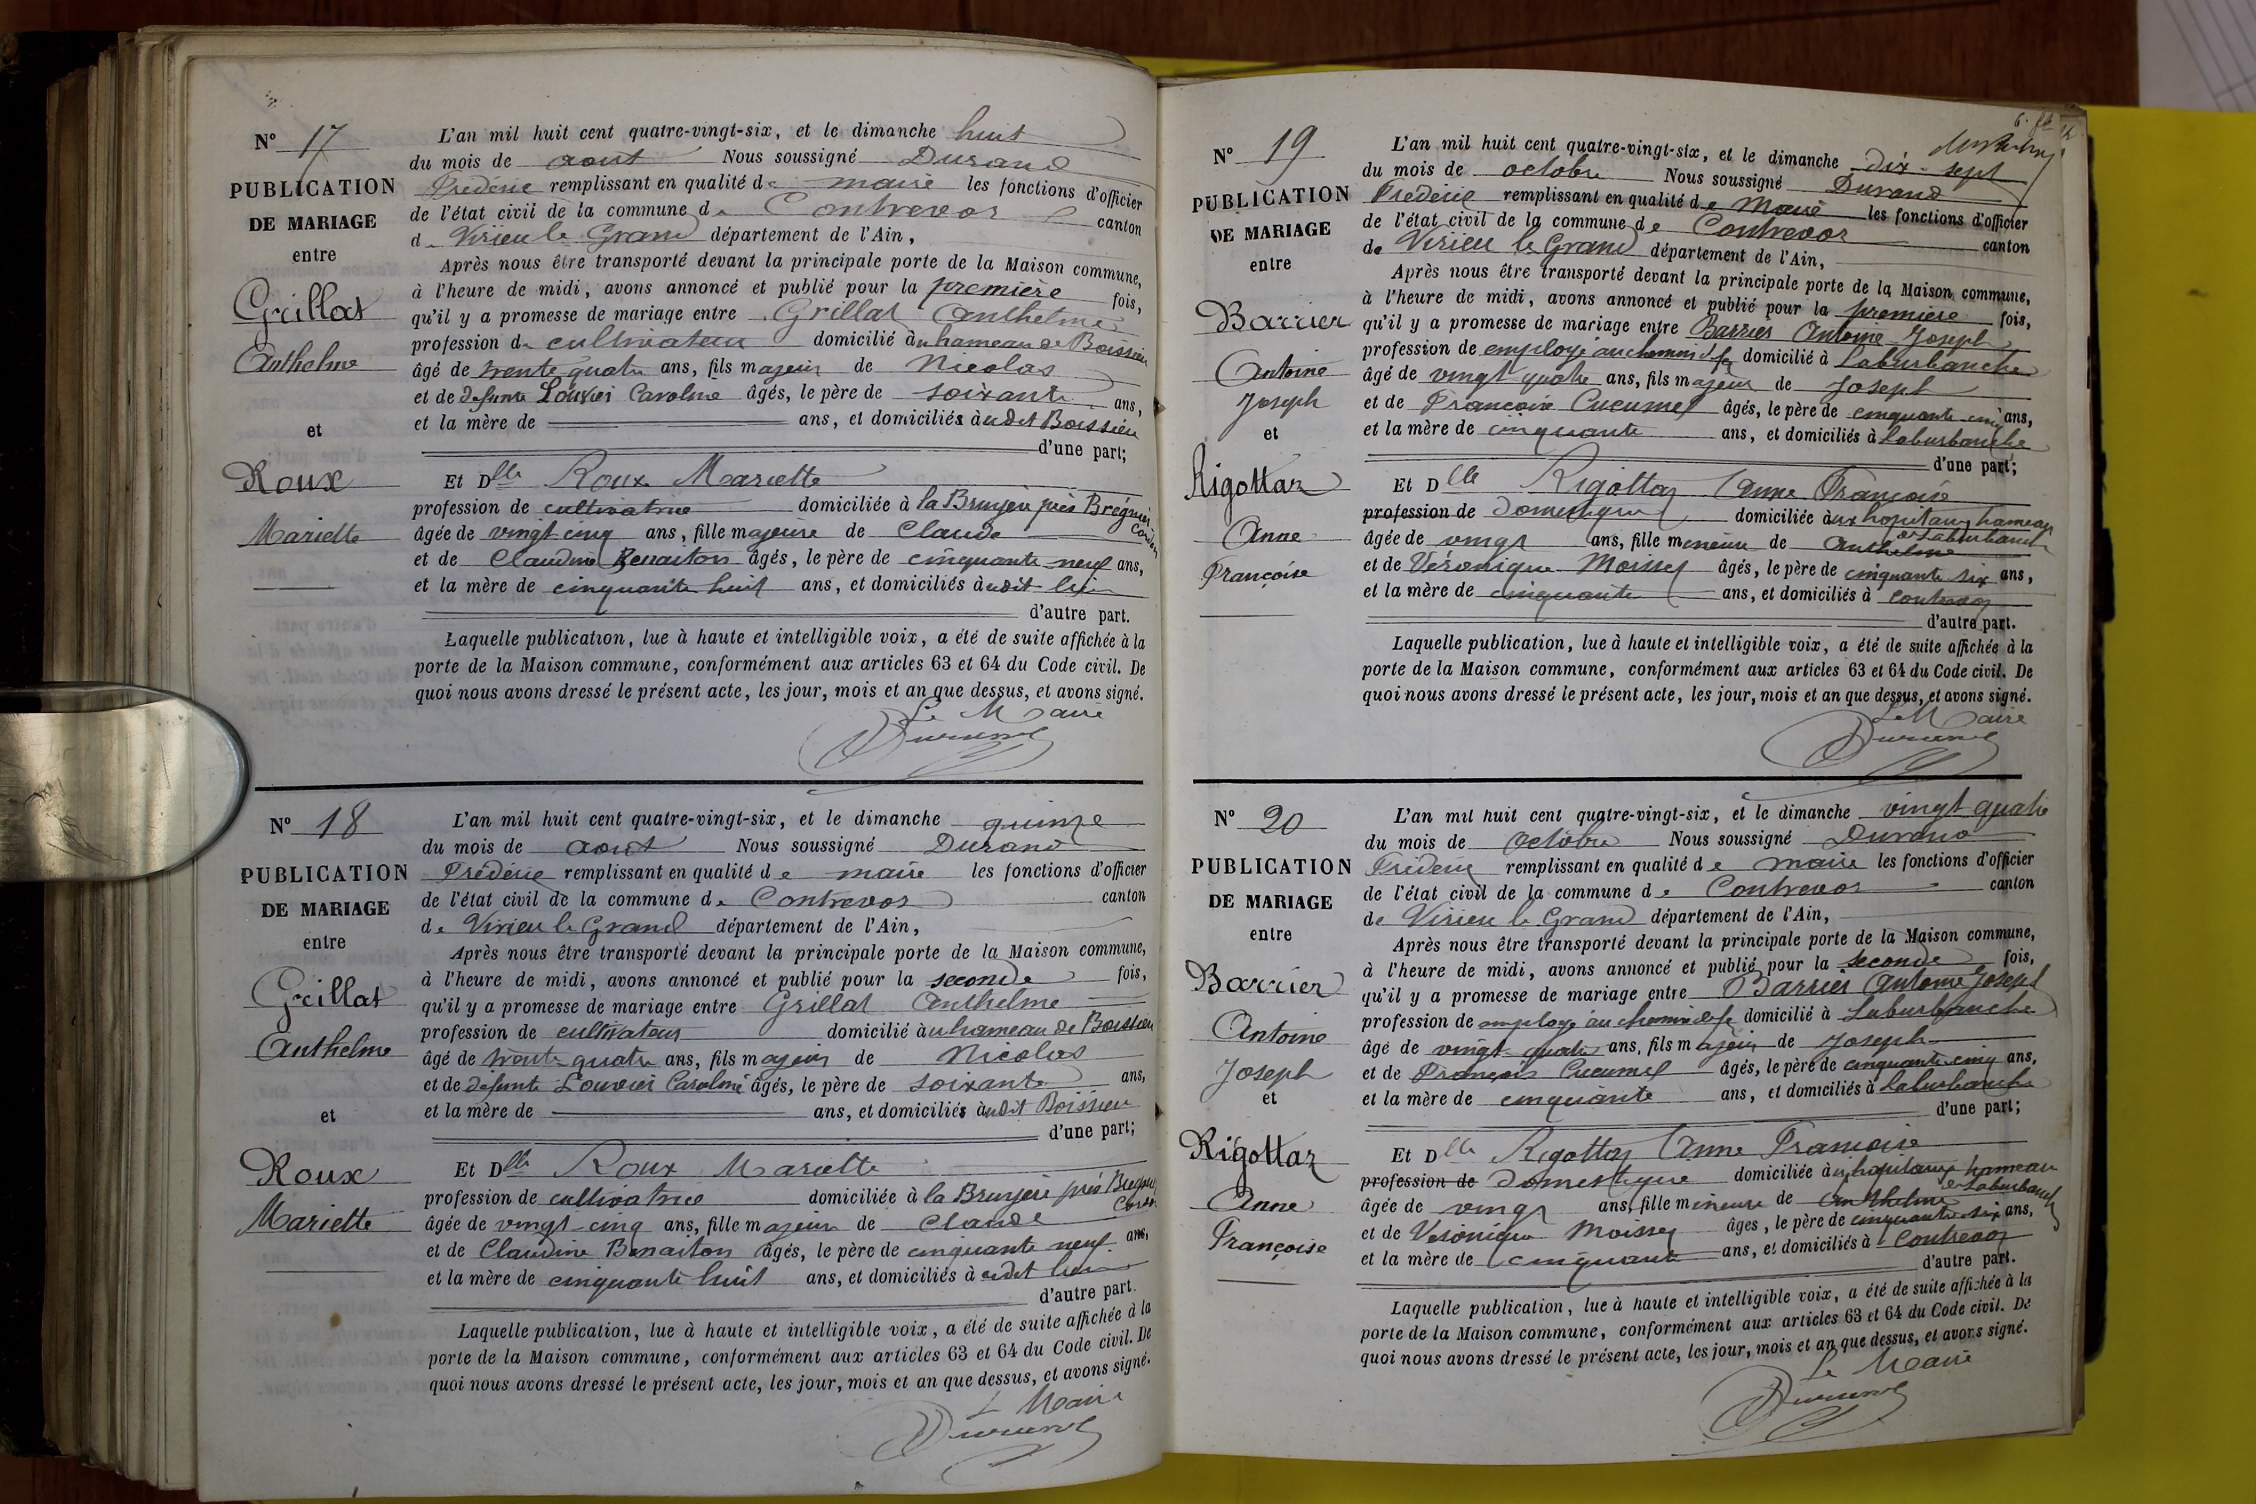 N° 17
PUBLICATION
DE MARIAGE
entre
Grillat
Anthelme
et
Roux
Mariette
L'an mil huit cent quatre-vingt-six, et le dimanche huit
du mois de aout Nous soussigné Durand
Frédéric remplissant en qualité de maire les fonctions d'officier
de l'état civil de la commune de Contrevoz canton
de Virieu le Grand département de l'Ain,
Après nous être transporté devant la principale porte de la Maison commune,
à l'heure de midi, avons annoncé et publié pour la première fois,
qu'il y a promesse de mariage entre Grillat Anthelme
profession de cultivateur domicilié à u hameau de Boissieu
âgé de trente quatre ans, fils majeur de Nicolas
et de defunte Louvier Caroline âgés, le père de soixante ans,
et la mère de ans, et domiciliés à udit Boissieu
d'une part;
Et Dlle Roux Mariette
profession de cultivatrice domiciliée à la Bruyère près Brégnier Cordon
âgée de vingt-cinq ans, fille majeure de Claude
et de Claudine Benaiton âgés, le père de cinquante neuf ans,
et la mère de cinquante huit ans, et domiciliés à udit lieu
d'autre part.
Laquelle publication, lue à haute et intelligible voix, a été de suite affichée à la
porte de la Maison commune, conformément aux articles 63 et 64 du Code civil. De
quoi nous avons dressé le présent acte, les jour, mois et an que dessus, et avons signé.
Le Maire
Durand
N° 18
PUBLICATION
DE MARIAGE
entre
Grillat
Anthelme
et
Roux
Mariette
L'an mil huit cent quatre-vingt-six, et le dimanche quinze
du mois de aout Nous soussigné Durand
Frédéric remplissant en qualité de maire les fonctions d'officier
de l'état civil de la commune de Contrevoz canton
de Virieu le Grand département de l'Ain,
Après nous être transporté devant la principale porte de la Maison commune,
à l'heure de midi, avons annoncé et publié pour la seconde fois,
qu'il y a promesse de mariage entre Grillat Anthelme
profession de cultivateur domicilié à u hameau de Boissieu
âgé de trente quatre ans, fils majeur de Nicolas
et de defunte Louvier Caroline âgés, le père de soixante ans,
et la mère de ans, et domiciliés à udit Boissieu
d'une part;
Et Dlle Roux Mariette
profession de cultivatrice domiciliée à la Bruyère près Bregnier Cordon
âgée de vingt-cinq ans, fille majeure de Claude
et de Claudine Benaiton âgés, le père de cinquante neuf ans,
et la mère de cinquante huit ans, et domiciliés à udit lieu
d'autre part.
Laquelle publication, lue à haute et intelligible voix, a été de suite affichée à la
porte de la Maison commune, conformément aux articles 63 et 64 du Code civil. De
quoi nous avons dressé le présent acte, les jour, mois et an que dessus, et avons signé.
Le Maire
Durand
N° 19
PUBLICATION
DE MARIAGE
entre
Barrier
Antoine
Joseph
et
Rigottaz
Anne
Françoise
L'an mil huit cent quatre-vingt-six, et le dimanche dix-sept
du mois de octobre Nous soussigné Durand
Frédéric remplissant en qualité de Maire les fonctions d'officier
de l'état civil de la commune de Contrevoz canton
de Virieu le Grand département de l'Ain,
Après nous être transporté devant la principale porte de la Maison commune,
à l'heure de midi, avons annoncé et publié pour la première fois,
qu'il y a promesse de mariage entre Barrier Antoine Joseph
profession de employé au chemin d fer domicilié à Laburbanche
âgé de vingt quatre ans, fils majeur de Joseph
et de Françoise Cucumel âgés, le père de cinquante cinq ans,
et la mère de cinquante ans, et domiciliés à Laburbanche
d'une part;
Et Dlle Rigottaz Anne Françoise
profession de Domestique domiciliée à ux hopitaux hameau
de Laburbanche
âgée de vingt ans, fille mineure de Anthelme
et de Véronique Moissey âgés, le père de cinquante six ans,
et la mère de cinquante ans, et domiciliés à Contrevoz
d'autre part.
Laquelle publication, lue à haute et intelligible voix, a été de suite affichée à la
porte de la Maison commune, conformément aux articles 63 et 64 du Code civil. De
quoi nous avons dressé le présent acte, les jour, mois et an que dessus, et avons signé.
Le Maire
Durand
N° 20
PUBLICATION
DE MARIAGE
entre
Barrier
Antoine
Joseph
et
Rigottaz
Anne
Françoise
L'an mil huit cent quatre-vingt-six, et le dimanche vingt quatre
du mois de Octobre Nous soussigné Durand
Frédéric remplissant en qualité de maire les fonctions d'officier
de l'état civil de la commune de Contrevoz canton
de Virieu le Grand département de l'Ain,
Après nous être transporté devant la principale porte de la Maison commune,
à l'heure de midi, avons annoncé et publié pour la seconde fois,
qu'il y a promesse de mariage entre Barrier Antoine Joseph
profession de employé au chemin de fe domicilié à Laburbanche
âgé de vingt-quatre ans, fils majeur de Joseph
et de François Cucumel âgés, le père de cinquante-cinq ans,
et la mère de cinquante ans, et domiciliés à Laburbanche
d'une part;
Et Dlle Rigottaz Anne Francoise
profession de Domestique domiciliée à ux hopitaux hameau
de Laburbanche
âgée de vingt ans, fille mineure de Anthelme
et de Veronique Moissey âgés, le père de cinquante-six ans,
et la mère de cinquante ans, et domiciliés à Contrevoz
d'autre part.
Laquelle publication, lue à haute et intelligible voix, a été de suite affichée à la
porte de la Maison commune, conformément aux articles 63 et 64 du Code civil. De
quoi nous avons dressé le présent acte, les jour, mois et an que dessus, et avons signé.
Le Maire
Durand